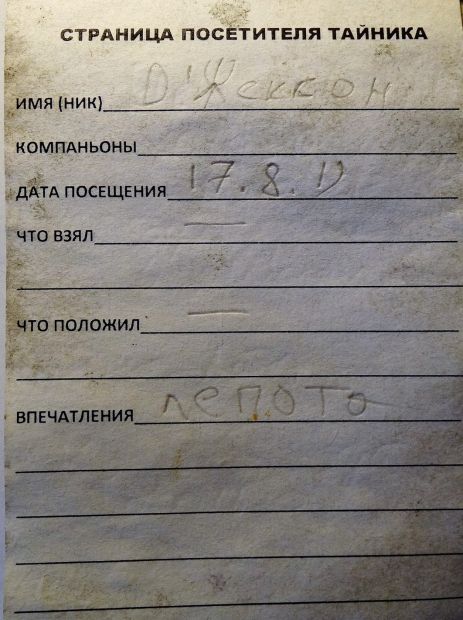 СТРАНИЦА ПОСЕТИТЕЛЯ ТАЙНИКА
ИМЯ (НИК) D'Жексон
КОМПАНЬОНЫ
ДАТА ПОСЕЩЕНИЯ 17.8.19
ЧТО ВЗЯЛ —
ЧТО ПОЛОЖИЛ —
ВПЕЧАТЛЕНИЯ лепота